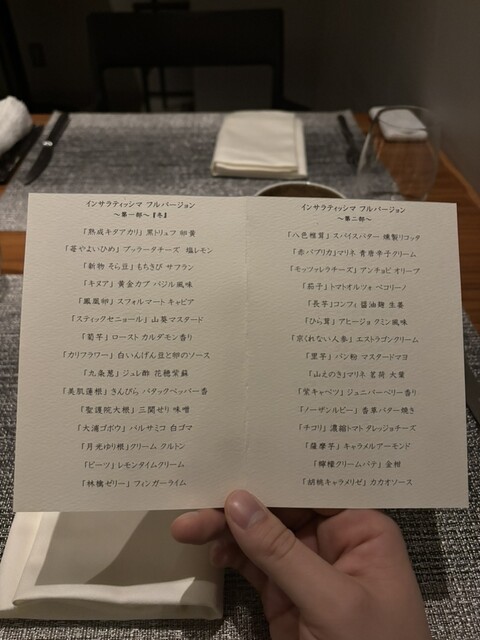 インサラティッシマ フルバージョン
～第一部～『冬』
「熟成キタアカリ」黒トリュフ 卵黄
「苺やよいひめ」ブッラータチーズ 塩レモン
「新物 そら豆」もちきび サフラン
「キヌア」黄金カブ バジル風味
「鳳凰卵」スフォルマート キャビア
「スティックセニョール」山葵マスタード
「菊芋」ロースト カルダモン香り
「カリフラワー」白いんげん豆と卵のソース
「九条葱」ジュレ酢 花穂紫蘇
「美肌蓮根」きんぴら バタックペッパー香
「聖護院大根」三関せり 味噌
「大浦ゴボウ」バルサミコ 白ゴマ
「月光ゆり根」クリーム クルトン
「ビーツ」レモンタイムクリーム
「林檎ゼリー」フィンガーライム
インサラティッシマ フルバージョン
～第二部～
「八色椎茸」スパイスバター 燻製リコッタ
「赤パプリカ」マリネ 青唐辛子クリーム
「モッツァレラチーズ」アンチョビ オリーブ
「茄子」トマトオルツォ ペコリーノ
「長芋」コンフィ 醤油麹 生姜
「ひら茸」アヒージョ クミン風味
「京くれない人参」エストラゴンクリーム
「里芋」パン粉 マスタードマヨ
「山えのき」マリネ 茗荷 大葉
「蛍キャベツ」ジュニパーベリー香り
「ノーザンルビー」香草バター焼き
「チコリ」濃縮トマト タレッジョチーズ
「薩摩芋」キャラメルアーモンド
「檸檬クリームパテ」金柑
「胡桃キャラメリゼ」カカオソース